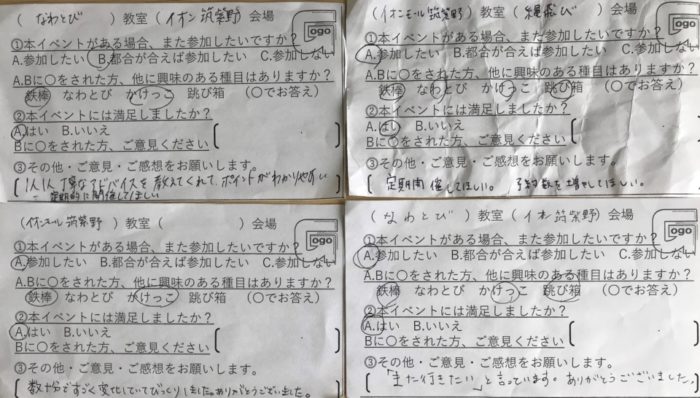 ( なわとび )教室( イオン筑紫野 )会場
ogo
①本イベントがある場合、また参加したいですか?
A.参加したい B.都合が合えば参加したい C.参加しない
A.Bに〇をされた方、他に興味のある種目はありますか?
鉄棒 なわとび かけっこ 跳び箱 (〇でお答え)
②本イベントには満足しましたか?
A.はい B.いいえ
Bに〇をされた方、ご意見ください
③その他・ご意見・ご感想をお願いします。
1人1人丁寧なアドバイスを教えてくれて ポイントがわかりやすい
定期的に開催してほしい
(イオンモール筑紫野)教室( 縄飛び )会場
ogo
①本イベントがある場合、また参加したいですか?
A.参加したい B.都合が合えば参加したい C.参加しない
A.Bに〇をされた方、他に興味のある種目はありますか?
鉄棒 なわとび かけっこ 跳び箱 (〇でお答え)
②本イベントには満足しましたか?
A.はい B.いいえ
Bに〇をされた方、ご意見ください
③その他・ご意見・ご感想をお願いします。
定期開催してほしい。 予約数を増やしてほしい。
(イオンモール筑紫野 )教室( )会場
ogo
①本イベントがある場合、また参加したいですか?
A.参加したい B.都合が合えば参加したい C.参加しない
A.Bに〇をされた方、他に興味のある種目はありますか?
鉄棒 なわとび かけっこ 跳び箱 (〇でお答え)
②本イベントには満足しましたか?
A.はい B.いいえ
Bに〇をされた方、ご意見ください
③その他・ご意見・ご感想をお願いします。
数十分ですごく変化していてびっくりしました。ありがとうございました。
( なわとび )教室( イオン筑紫野 )会場
ogo
①本イベントがある場合、また参加したいですか?
A.参加したい B.都合が合えば参加したい C.参加しない
A.Bに〇をされた方、他に興味のある種目はありますか?
鉄棒 なわとび かけっこ 跳び箱 (〇でお答え)
②本イベントには満足しましたか?
A.はい B.いいえ
Bに〇をされた方、ご意見ください
③その他・ご意見・ご感想をお願いします。
「また行きたい」と言っています。ありがとうございました。